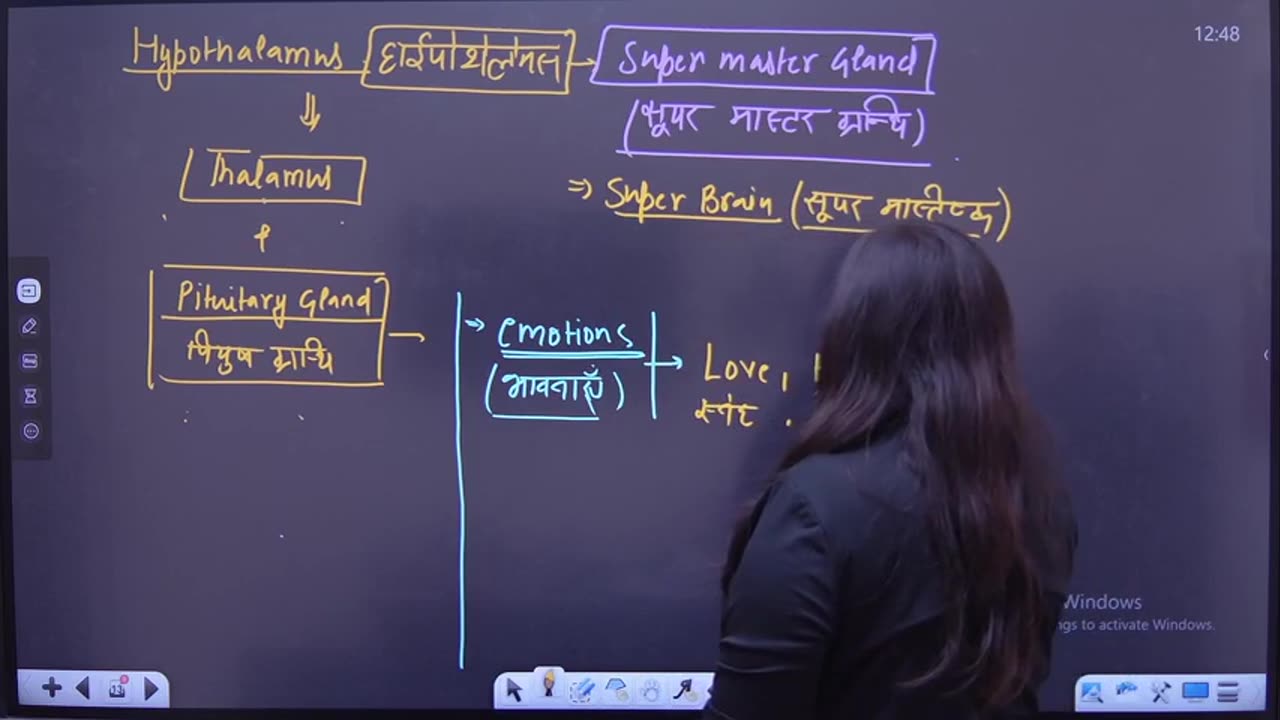 12:48
Hypothalamus हाईपोथैलेमस → Super master Gland
(सूपर मास्टर ग्रन्थि)
Thalamus
⇒ Super Brain (सूपर मास्तिष्क)
+
Pituitary Gland
पियुष ग्रन्थि
→ emotions → Love,
(भावनाएँ)
स्नेह
Windows
ngs to activate Windows.
13